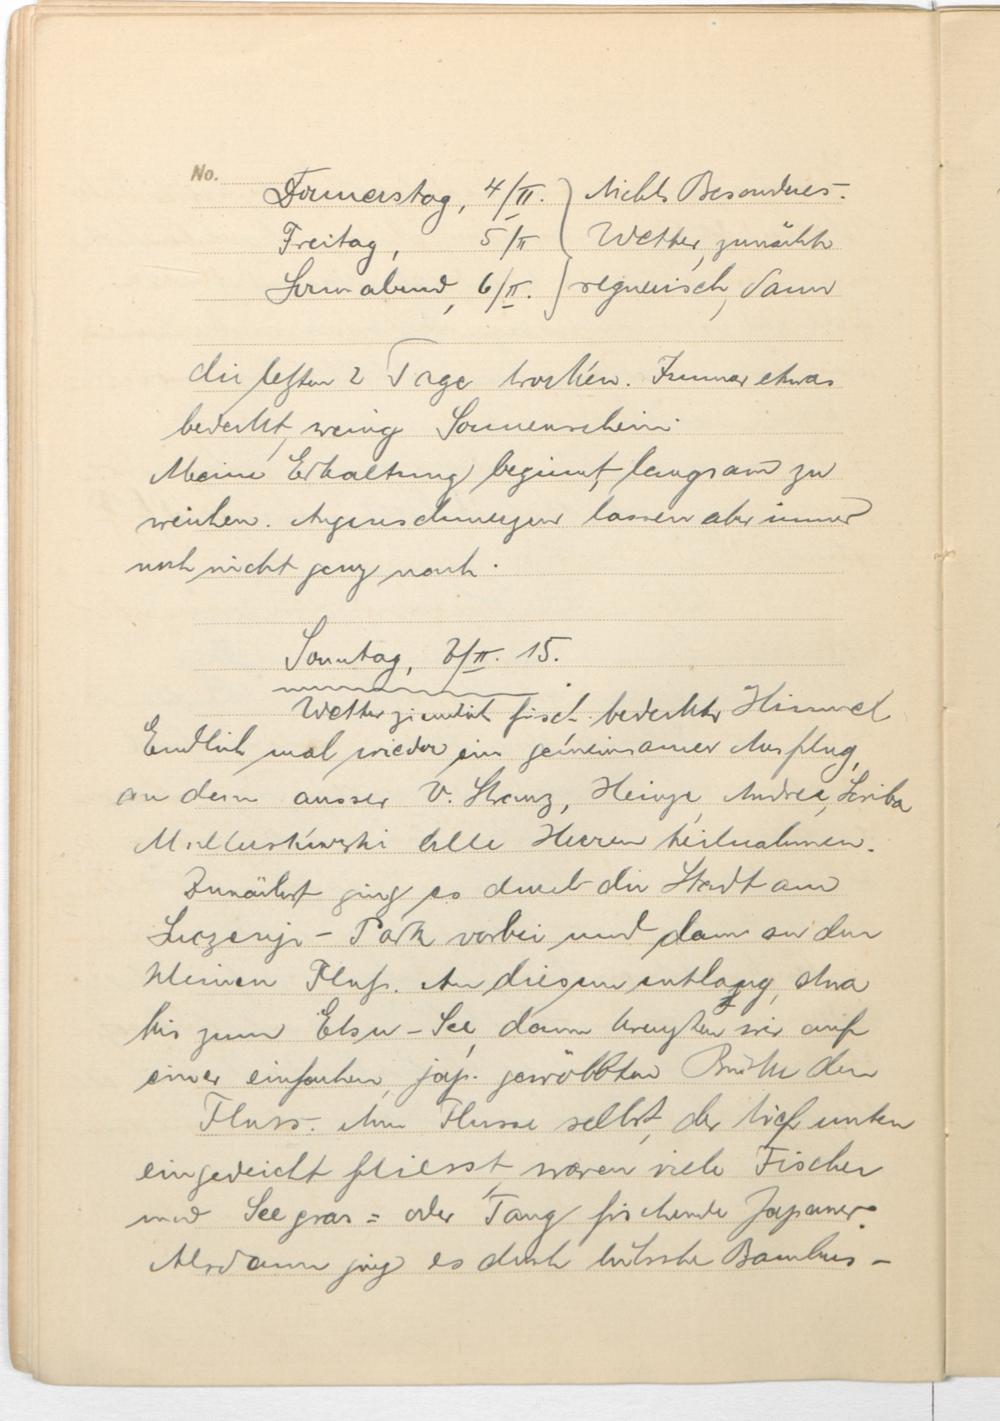 No.
Donnerstag, 4/II. } Nichts Besonderes.
Freitag, 5/II } Wetter, zunächst
Sonnabend, 6/II. } regnerisch, dann
die letzten 2 Tage trocken. Immer etwas
bedeckt, wenig Sonnenschein.
Meine Erkältung beginnt langsam zu
weichen. Augenschmerzen lassen aber immer
noch nicht ganz nach.
Sonntag, 7/II. 15.
Wetter ziemlich frisch bedeckter Himmel
Endlich mal wieder ein gemeinsamer Ausflug,
an dem ausser V. Stranz, Heinze, Andrea, Scriba
alle Herren teilnahmen.
Zunächst ging es durch die Stadt am
- Park vorbei und dann an den
kleinen Fluß. An diesem entlang, etwa
bis zum - See, dann kreuzten wir auf
einer einfachen, jap. gewölbten Brücke den
Fluss. Am Flusse selbst, der tief unten
eingedeicht fliesst, waren viele Fischer
und Seegras = oder Tang fischende Japaner.
Alsdann ging es durch hübsche Bambus -